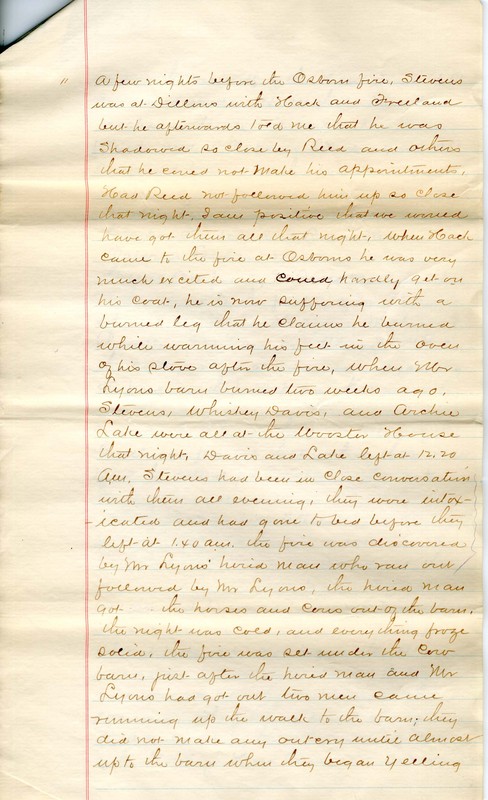 " A few nights before the Osborn fire, Stevens
was at Dillons with Hack and Freeland
but he afterwards told me that he was
Shadowed so close by Reed and others
that he coued not make his appointments,
Had Reed not followed him up so close
that night, I am positive that we woued
have got them all that night, when Hack
came to the fire at Osborns he was very
much excited and coued hardly get on
his coat, he is now suffering with a
burned leg that he claims he burned
while warming his feet in the oven
of his stove after the fire, when Mr
Lyons barn burned two weeks ago,
Stevens, Whiskey Davis, and Archie
Lake were all at the Wooster House
that night, Davis and Lake left at 12.20
Am. Stevens had been in close conversation
with them all evening, they were intox-
-icated and had gone to bed before they
left at 1.40 am. the fire was discovered
by Mr Lyons' hired man who ran out
followed by Mr Lyons, the hired man
got the horses and cows out of the barn,
the night was cold, and everything froze
solid, the fire was set under the cow
barn, just after the hired man and Mr
Lyons had got out two men came
running up the walk to the barn; they
did not make any outcry until almost
up to the barn when they began yelling